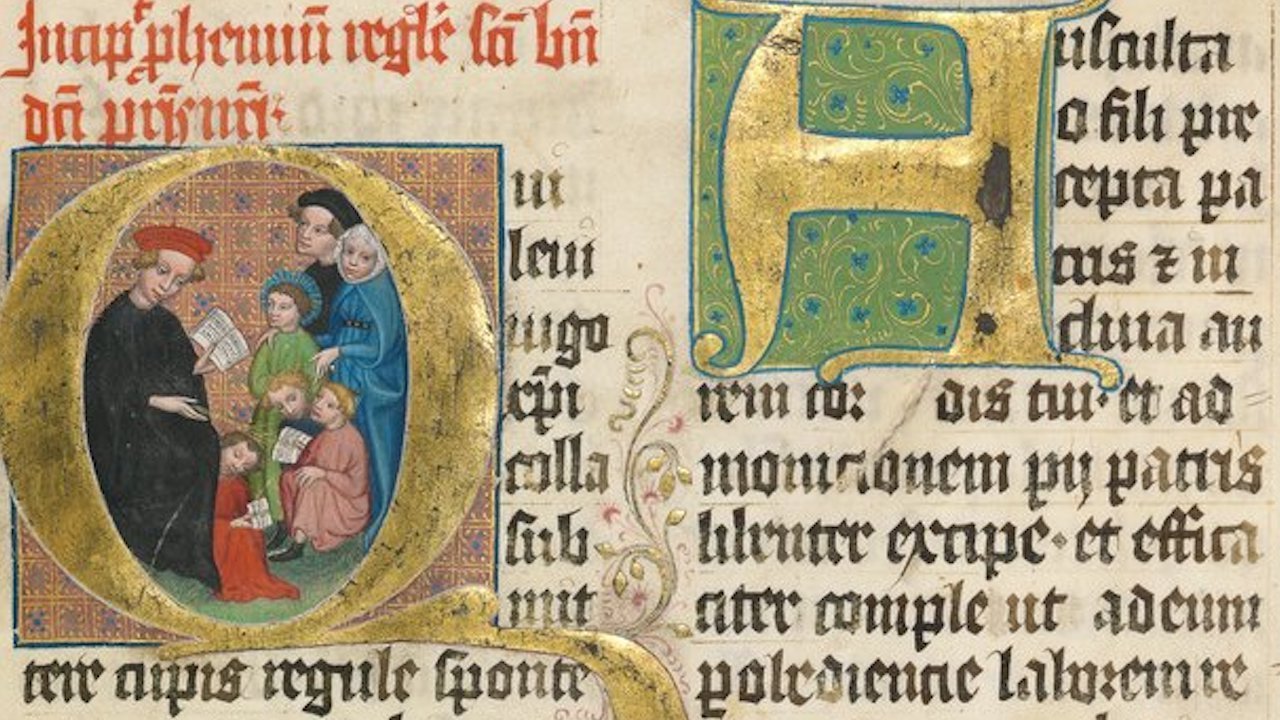 Incip̄ ꝓhemiū regl̄e sc̄i bn̄
dc̄i pr̄is nr̄i·
Qui
leui
iugo
xp̄i
colla
sub
mit
tere cupis regule sponte
Ausculta
o fili pre
cepta pa
tris ⁊ in
clina au
rem cor dis tui· et ad
monicionem pij patris
libenter excipe· et effica
citer comple ut ad eum
ꝑ obediencie laborem re